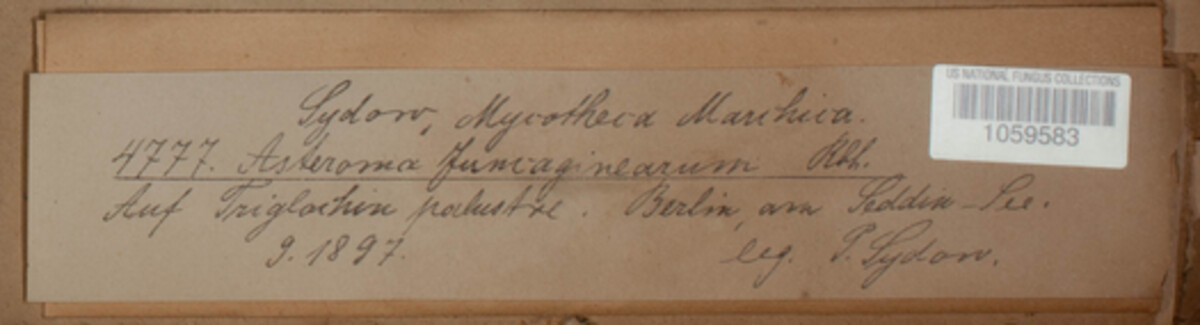 Sydow, Mycotheca Marchica.
4777. Asteroma Juncaginearum Rbh.
Auf Triglochin palustre. Berlin, am Seddin-See.
9. 1897. leg. P. Sydow.
US NATIONAL FUNGUS COLLECTIONS
1059583